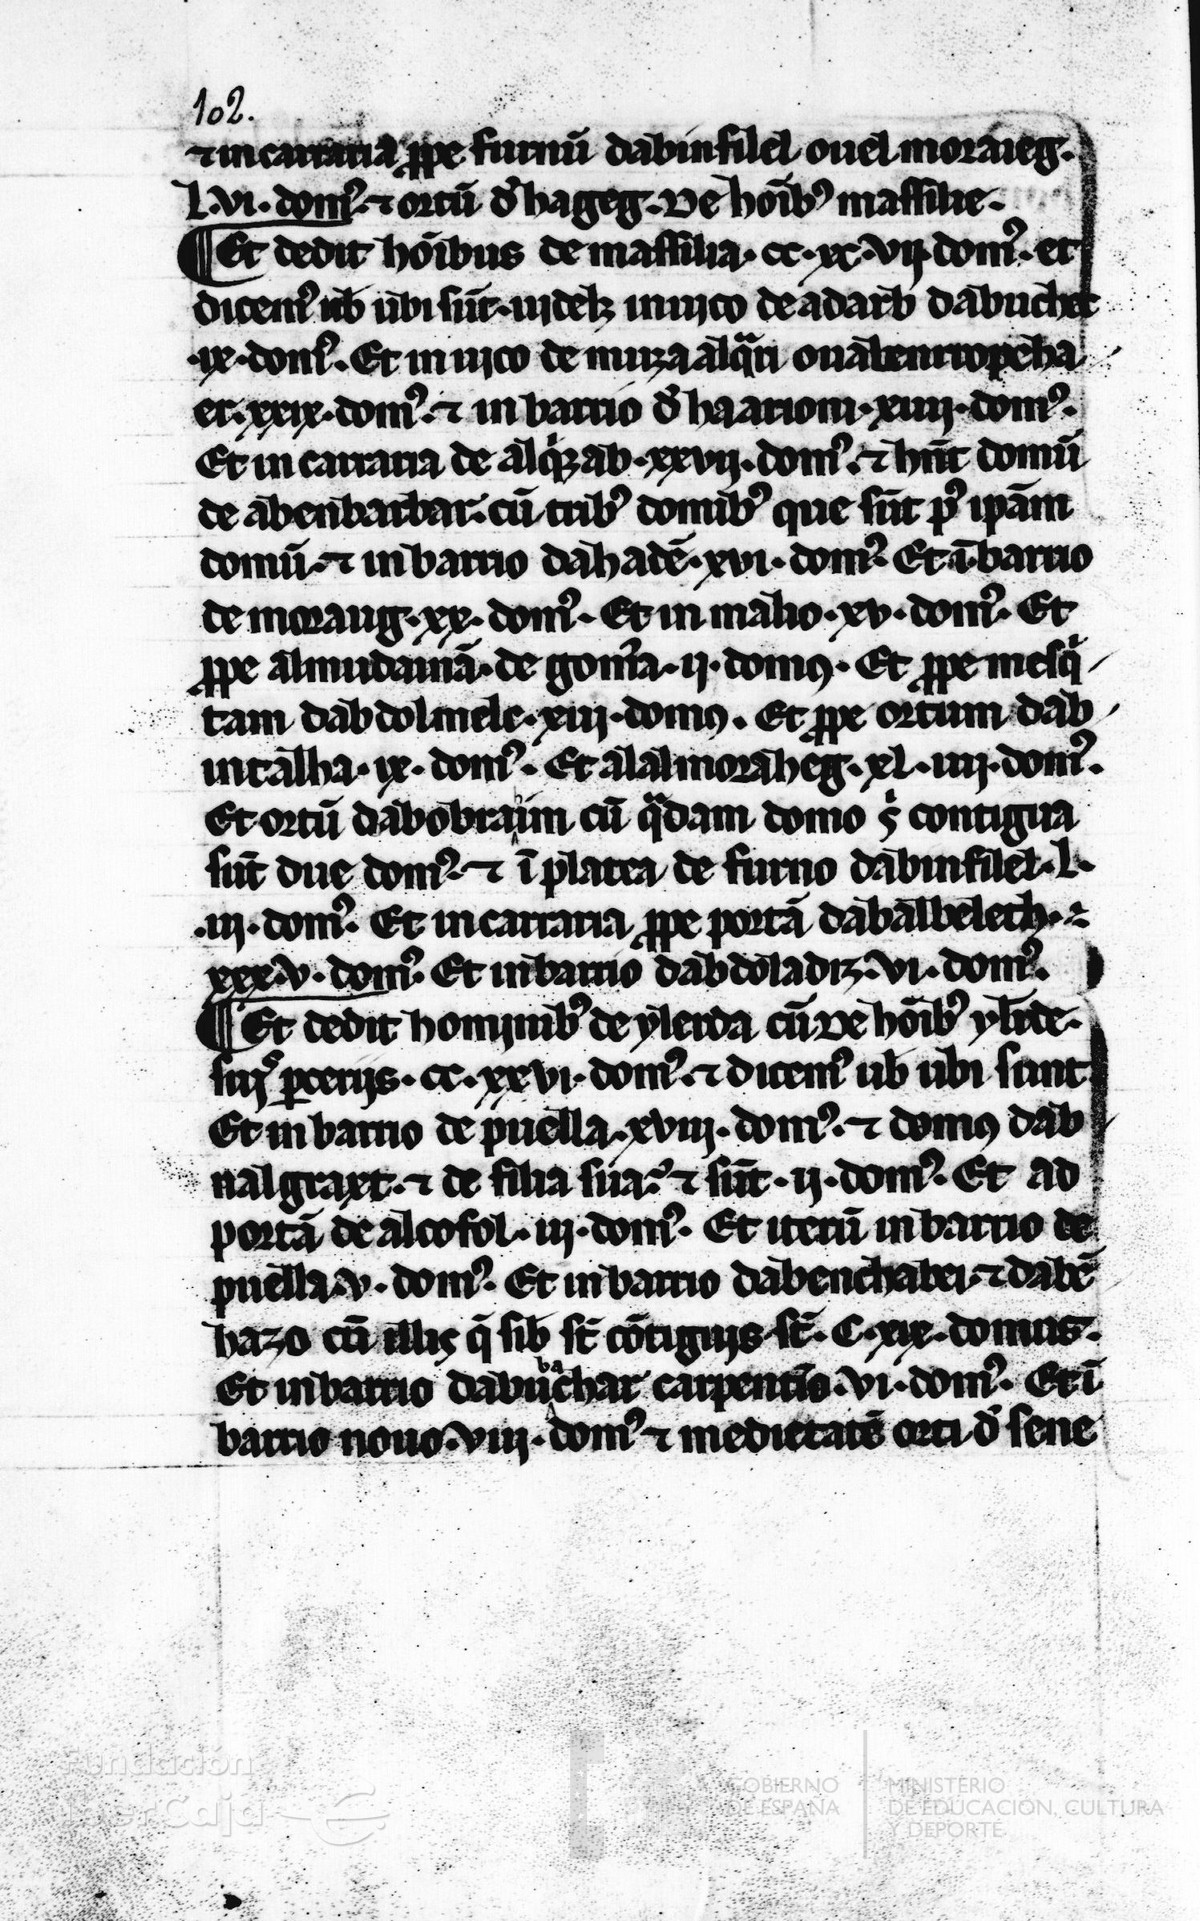 102.
⁊ in carraria ꝓpe furnū dabinfilel ouel moraieg.
L·vi· domꝰ· ⁊ ortū đ hageg. De hōibꝰ massilie·
¶ Et dedit hōibus de massilia· cc· xc· vij· domꝰ· et
dicemꝰ uƀ ubi sūt· uidelꝫ in uico de adarb dabuchet
·ix· domꝰ. Et in uico de
et· xxix· domꝰ· ⁊ in barrio đ haarioni· xiiij· domꝰ.
Et in carraria de ·xxvij· domꝰ· ⁊ hn̄t domū
de abenbarbar· cū tribꝰ domibꝰ que sūt ipām
domū· ⁊ in barrio dahadē· xvi· domꝰ· Et ī barrio
de moraug· xx· domꝰ· Et in malio· xv· domꝰ· Et
ꝓpe almudainā· de gomra· ij· domꝰ· Et ꝓpe mesq̄
tam dabdolmele· xiij· domꝰ. Et ꝓpe ortum dab
intalha· ix· domꝰ· Et alalmoraheg· xl· iiij· domꝰ.
Et ortū dabobraim cū q̄dam domo contigua
sūt due domꝰ· ⁊ ī platea de furno dabinfilel· L·
·iij· domꝰ· Et in carraria ꝓpe portā dabalbelech·
xxx· v· domꝰ· Et in barrio dabdoladiz· vi· domꝰ.
¶ Et dedit hominibꝰ de ylerda cū De hōibꝰ ylrde·
suis ꝑcerijs· cc· xxvi· domꝰ· ⁊ dicemꝰ uƀ ubi sunt
Et in barrio de puella· xviij· domꝰ· ⁊ domꝰ dab
nalgraxt· ⁊ de filia sua· ⁊ sūt· ij· domꝰ· Et ad
portā de alcofol· iij· domꝰ· Et iterū in barrio de
puella· v· domꝰ· Et in barrio dabenchabei· ⁊ dabē
hazo cū illis q̄ sib st̄ cōtiguis st̄· C· xix· domus·
Et in barrio dabubachar carpentio· vi· domꝰ· Et ī
barrio nouo· viij· domꝰ ⁊ medietatē orti đ sene
Fundación
IberCaja
GOBIERNO
DE ESPAÑA
MINISTERIO
DE EDUCACIÓN, CULTURA
Y DEPORTE